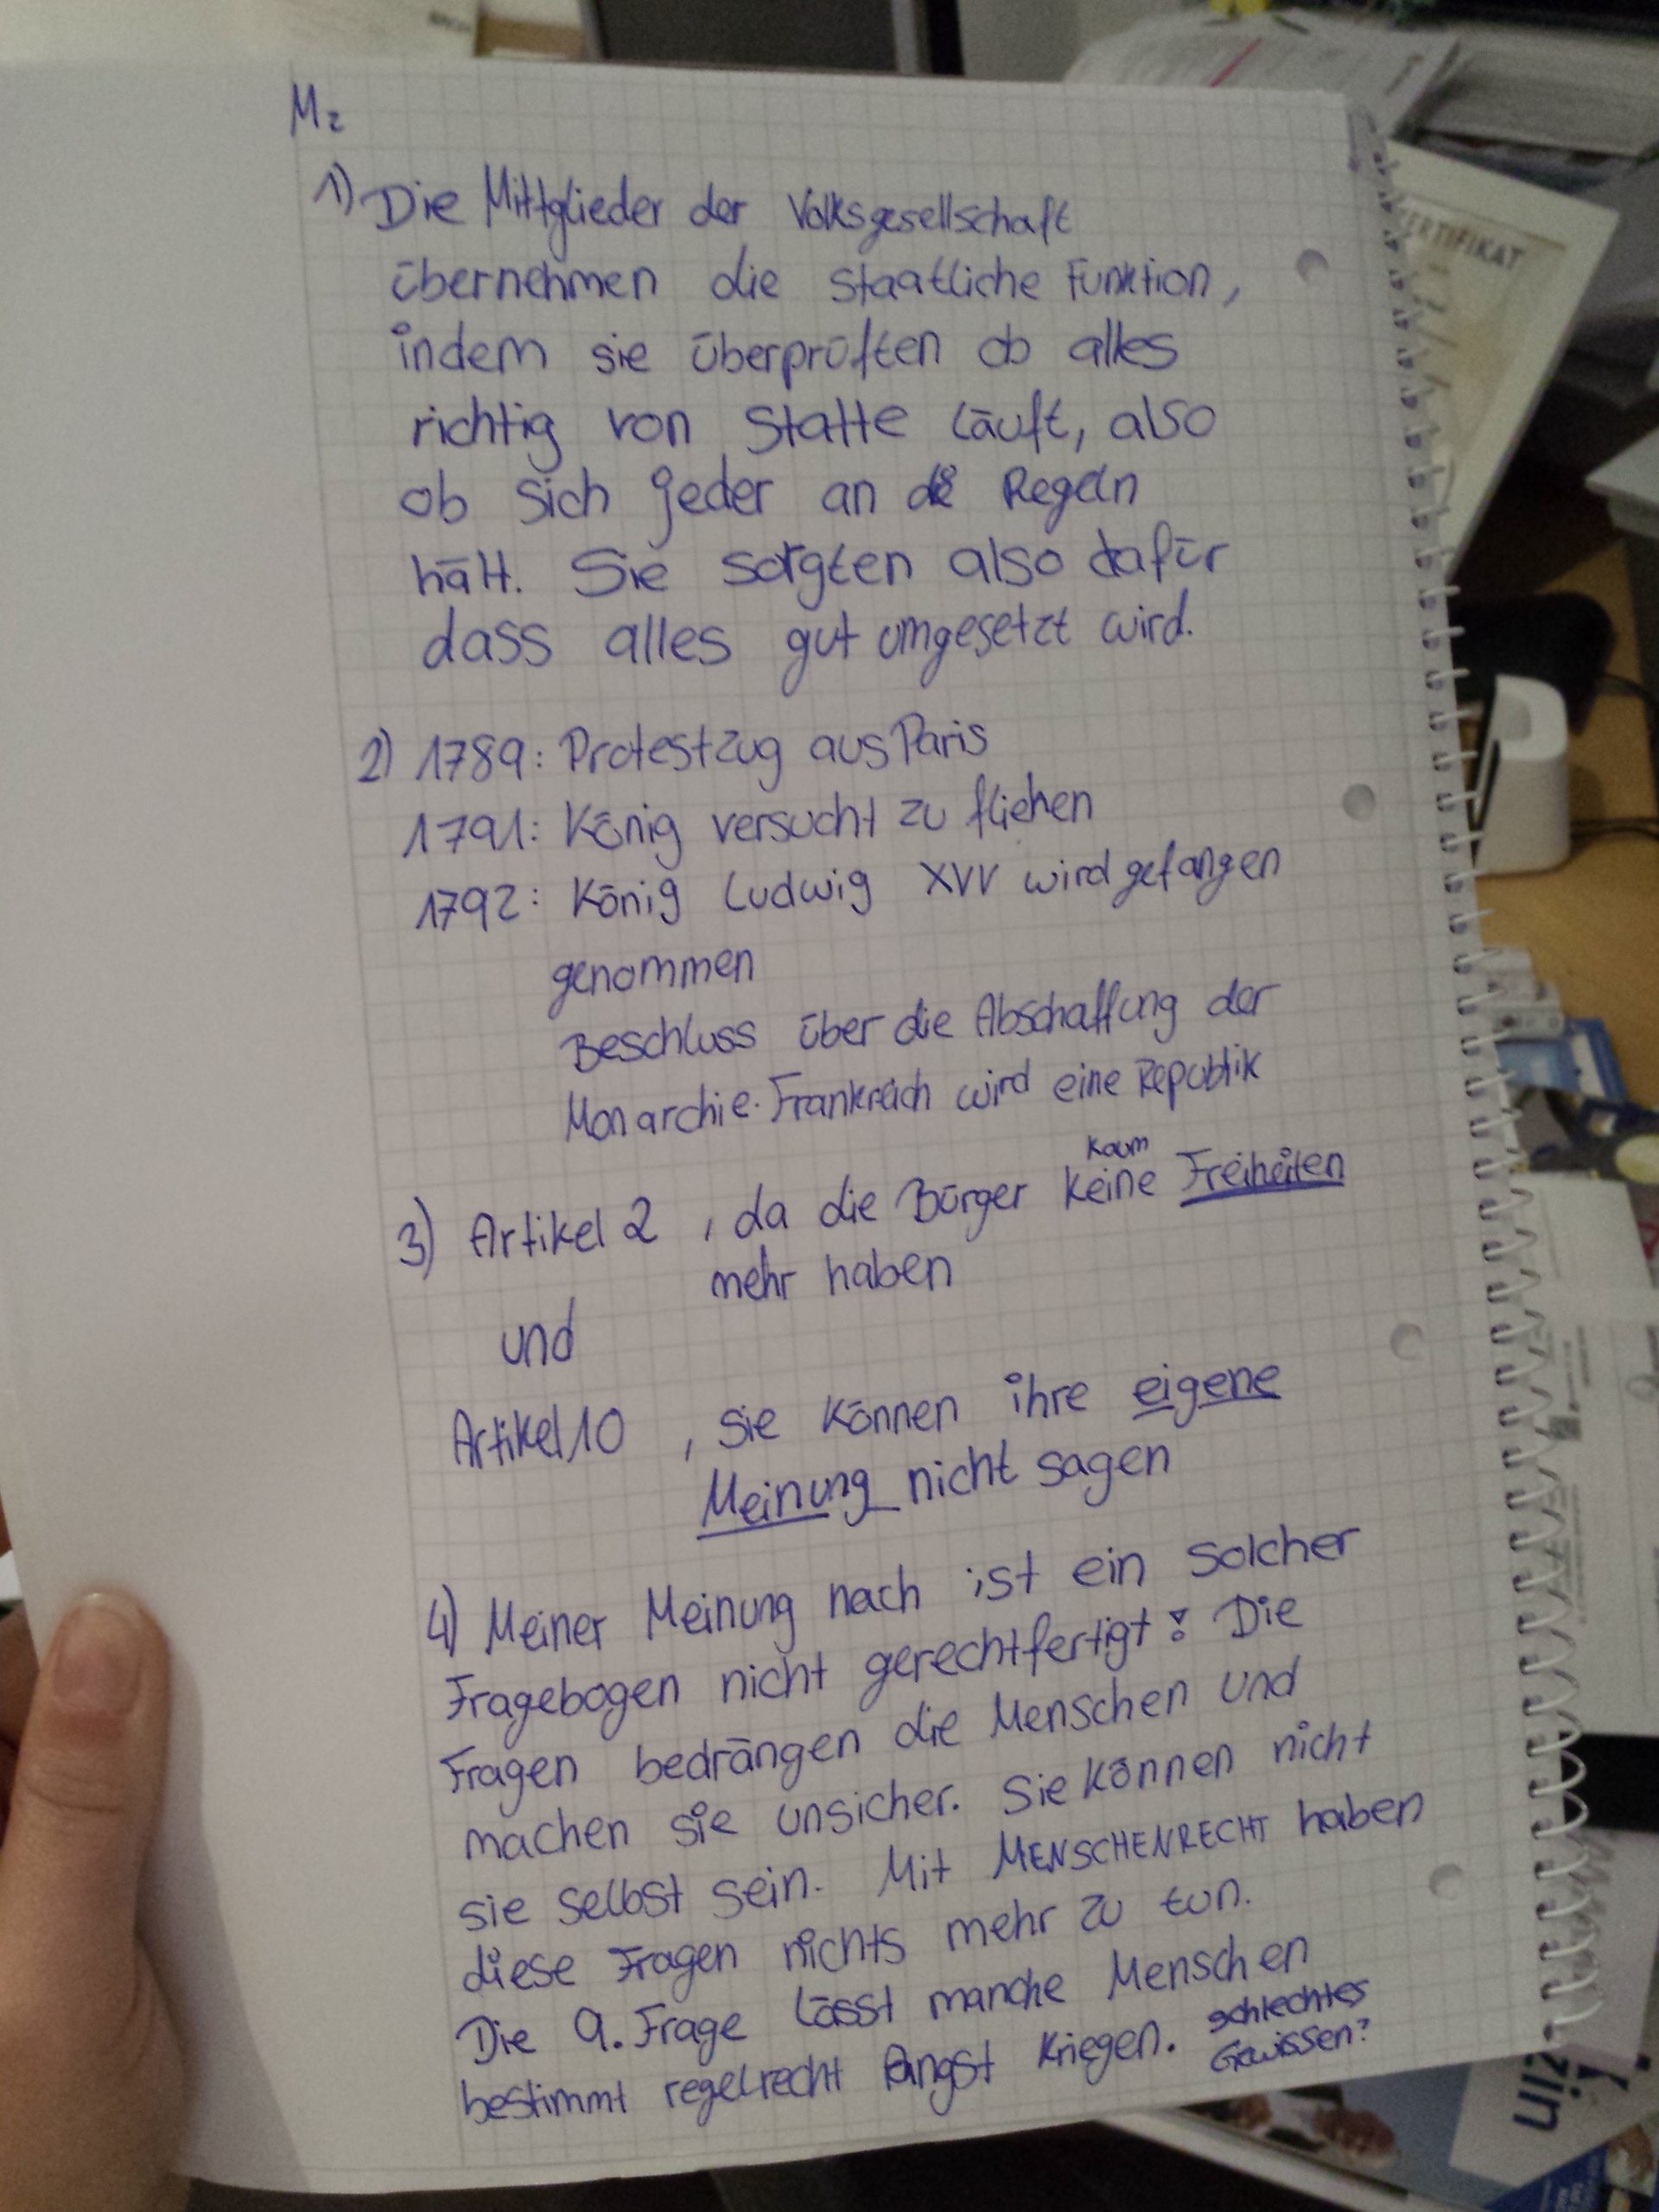 M2
1) Die Mittglieder der Volksgesellschaft
übernehmen die staatliche Funktion,
indem sie überprüften ob alles
richtig von Statte läuft, also
ob sich jeder an die Regeln
hält. Sie sorgten also dafür
dass alles gut umgesetzt wird.
2) 1789: Protestzug aus Paris
1791: König versucht zu fliehen
1792: König Ludwig XVV wird gefangen
genommen
Beschluss über die Abschaffung der
Monarchie. Frankreich wird eine Republik
kaum
3) Artikel 2, da die Bürger keine Freiheiten
mehr haben
und
Artikel 10, sie können ihre eigene
Meinung nicht sagen
4) Meiner Meinung nach ist ein solcher
Fragebogen nicht gerechtfertigt! Die
Fragen bedrängen die Menschen und
machen sie unsicher. Sie können nicht
sie selbst sein. Mit MENSCHENRECHT haben
diese Fragen nichts mehr zu tun.
Die 9. Frage lässt manche Menschen
bestimmt regelrecht Angst kriegen. schlechtes
Gewissen?
ZERTIFIKAT
zin